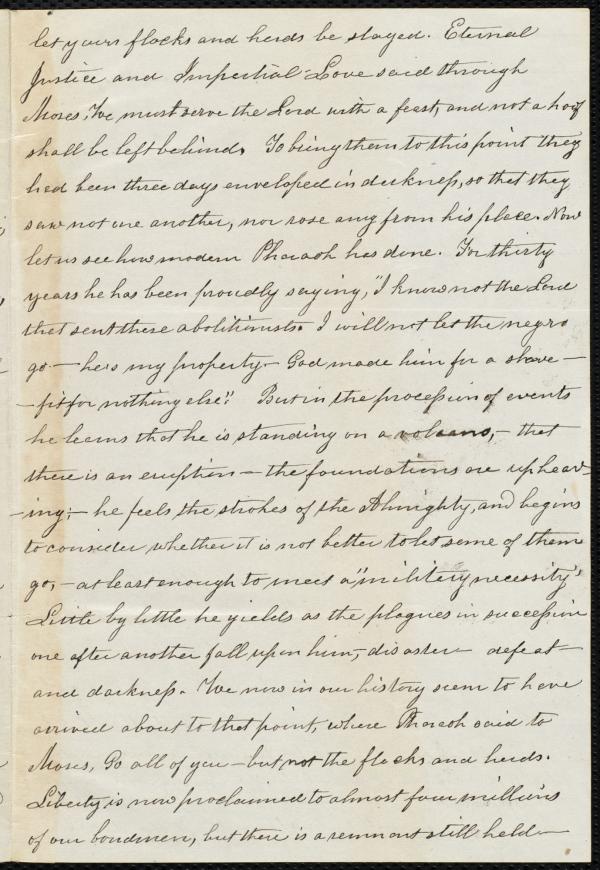 let your flocks and herds be stayed. Eternal
Justice and Impartial Love said through
Moses, We must serve the Lord with a feast, and not a hoof
shall be left behind. To bring them to this point they
had been three days enveloped in darkness, so that they
saw not one another, nor rose any from his place. Now
let us see how modern Pharaoh has done. For thirty
years he has been proudly saying, "I know not the Lord
that sent these abolitionists. I will not let the negro
go — he's my property — God made him for a slave —
— fit for nothing else". But in the procession of events
he learns that he is standing on a volcano, — that
there is an eruption — the foundations are upheav-
-ing; — he feels the strokes of the Almighty, and begins
to consider whether it is not better to let some of them
go, — at least enough to meet a "military necessity".
Little by little he yields as the plagues in succession
one after another fall upon him, — disaster — defeat —
and darkness. We now in our history seem to have
arrived about to that point, where Pharaoh said to
Moses, Go all of you — but not the flocks and herds.
Liberty is now proclaimed to almost four millions
of our bondmen, but there is a remnant still held —